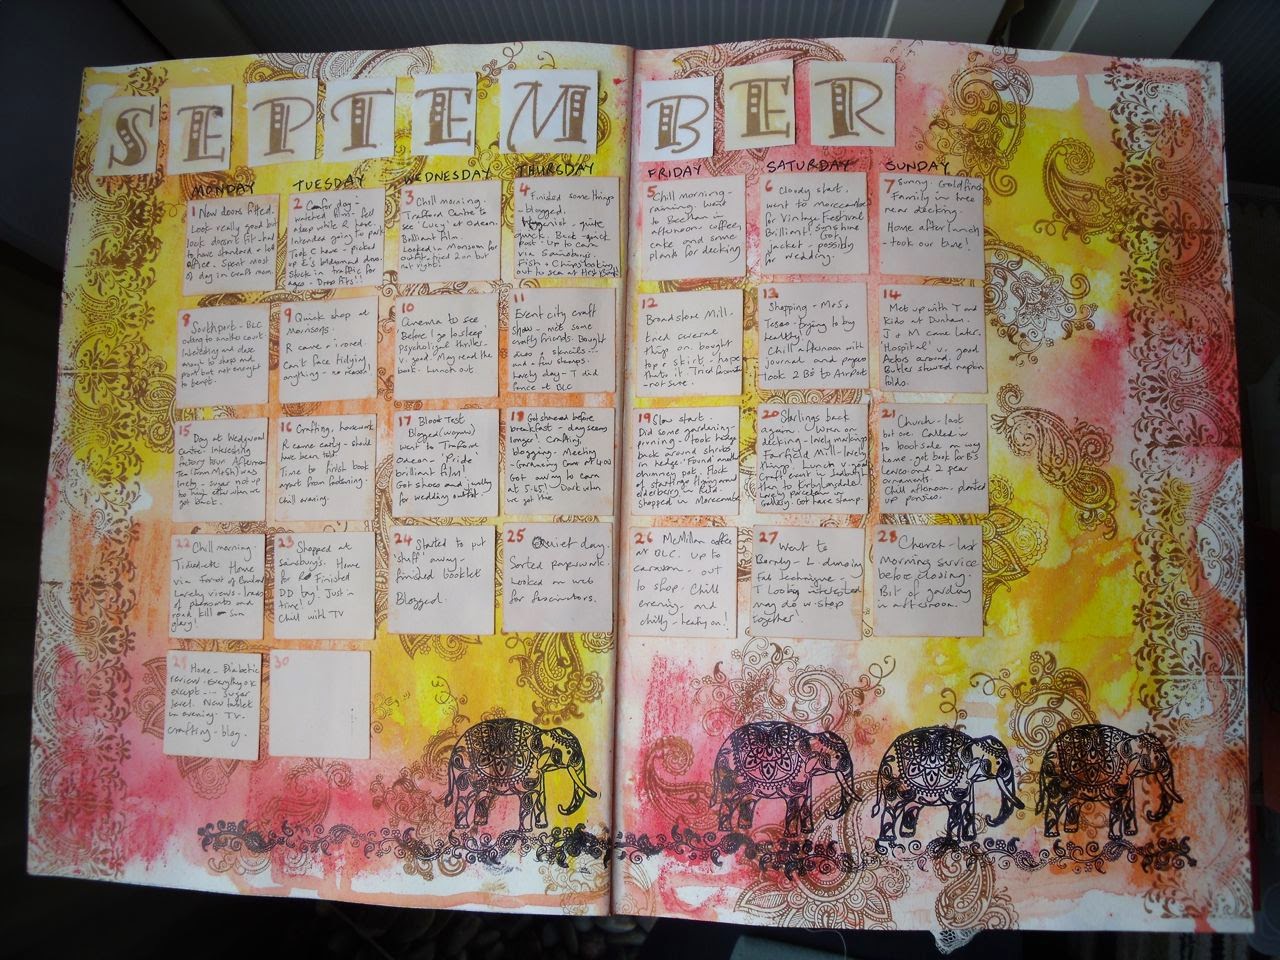 SEPTEMBER
MONDAY TUESDAY WEDNESDAY THURSDAY FRIDAY SATURDAY SUNDAY
1 New doors fitted.
Look really good but
look doesn't fit - had
to have standard lock
office. Spent most
of day in craft room
2 day -
watched film - fell
asleep while R here.
Intended going to park
Took C home - picked
up E's and
stuck in traffic for
ages -
3 Chill morning.
Trafford Centre to
see 'Lucy' at Odeon.
Brilliant film.
Looked in Monsoon for
outfit, tried 2 on but
not right.
4 Finished some things
- blogged.
Hygenist - quite
quick. Back - quick
post - up to cara
via Sainsburys.
Fish + Chips looking
out to sea at Hest Bank
5 Chill morning -
raining. Went
to Beetham in
afternoon - coffee,
cake and some
plants for decking
6 Cloudy start.
went to morecambe
for Vintage Festival
Brilliant! Sunshine Got
jacket - possibly
for wedding.
7 Sunny. Goldfinch
Family in tree
near decking.
Home after lunch
- took our time!
8
Southport - BLC
outing to another court
Interesting and due
many to shops and
pier but not enough
to tempt.
9 Quick shop at
Morrisons.
R came + ironed.
Can't face tidying
anything - no reason!
10
Cinema to see
'Before I go to sleep'
Psychological thriller.
v. good. May read the
book. Lunch out
11
Event city craft
show - met some
crafty friends. Bought
dies + stencils ...
and a few stamps.
Lovely day - T did
fence at BLC
12
Broadstone Mill.
tried
things on. bought
top + skirt - hope
that's it. Tried
- not sure.
13
Shopping - M+S,
Tesco - trying to buy
healthy!
Chill afternoon with
journal and papers
took 2 Bs to Airport
14
Met up with T and
Kids at Dunham.
J + M came later.
'Hospital' v. good
Actors around.
Butler showed napkin
folds.
15
Day at Wedgwood
Centre. Interesting
factory tour. Afternoon
tea (from M+S) here
lovely - sugar not up
to much when we
got back.
16 Crafting, housework
R came early - shade
have been told.
Time to finish book
apart from fastening.
Chill evening.
17 Blood Test
Blogged (woyww)
went to Trafford
Odeon - 'Pride'
brilliant film!
Got shoes and jewelly
for wedding outfit
18 Got showered before
breakfast - day seems
longer! Crafting,
blogging. Meeting
- Gardening Com at 4.00
Got away to caravan
at 5.45! - Dark when
we got there
19 Slow start.
Did some gardening -
pruning - took hedge
back around shrubs
in hedge. Found another
chimney pot. Flock
of starlings flying around
elderberry in field
shopped in Morecambe
20 Starlings back
again. Wren on
decking - lovely markings
Farfield Mill - lovely
things. Lunch v. good
Craft event in
then to Kirkby Lonsdale.
Lovely porcelain in
Gallery. Got have stamp.
21
Church - last
but one. Called in
at boot sale on way
home - got book for B's
Lenco and 2 pear
ornaments.
Chill afternoon - planted
up pansies.
22
Chill morning.
Tidied it. Home
via Forest of Bowland
Lovely views - loads
of pheasants and
road kill - Sun
glory!
23 Shopped at
Sainsburys. Home
for R. Finished
DD tag. Just in
time!
Chill with TV
24 Started to put
'stuff' away -
finished booklet
Blogged.
25 Quiet day.
Sorted paperwork.
Looked on web
for fascinators.
26 McMillan coffee
at BLC. Up to
caravan - out
to shop. Chill
evening - and
chilly - heating on!
27 Went to
Barndy - L. demoing
Fab Technique -
T Looking interested
may do w-shop
together.
28
Church - last
Morning Service
before closing.
Bit of garden
in afternoon.
29 Home - Diabetic
review. Everything ok
except ... Sugar
level. New tablet
in evening. TV.
crafting - blog.
30